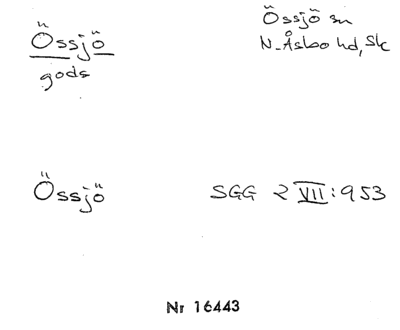 Össjö
gods
Össjö sn
N. Åsbo hd, Sk
Össjö
SGG 2 VII:953
Nr 16443